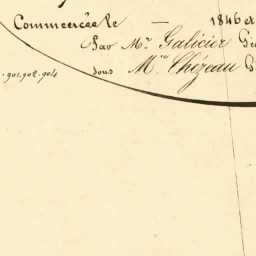 Commencée le — 1846 et
Par Mr. Galicier Gé
901.902.904 sous Mr. Chézeau G